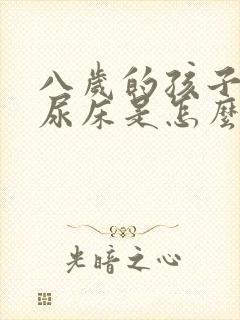 八歲的孩子
尿床是怎麼
光暗之心